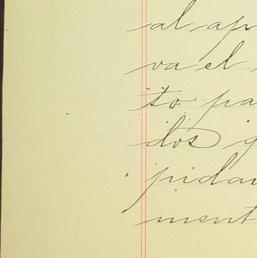 al ap
va el
to pa
dos g
pidan
ment